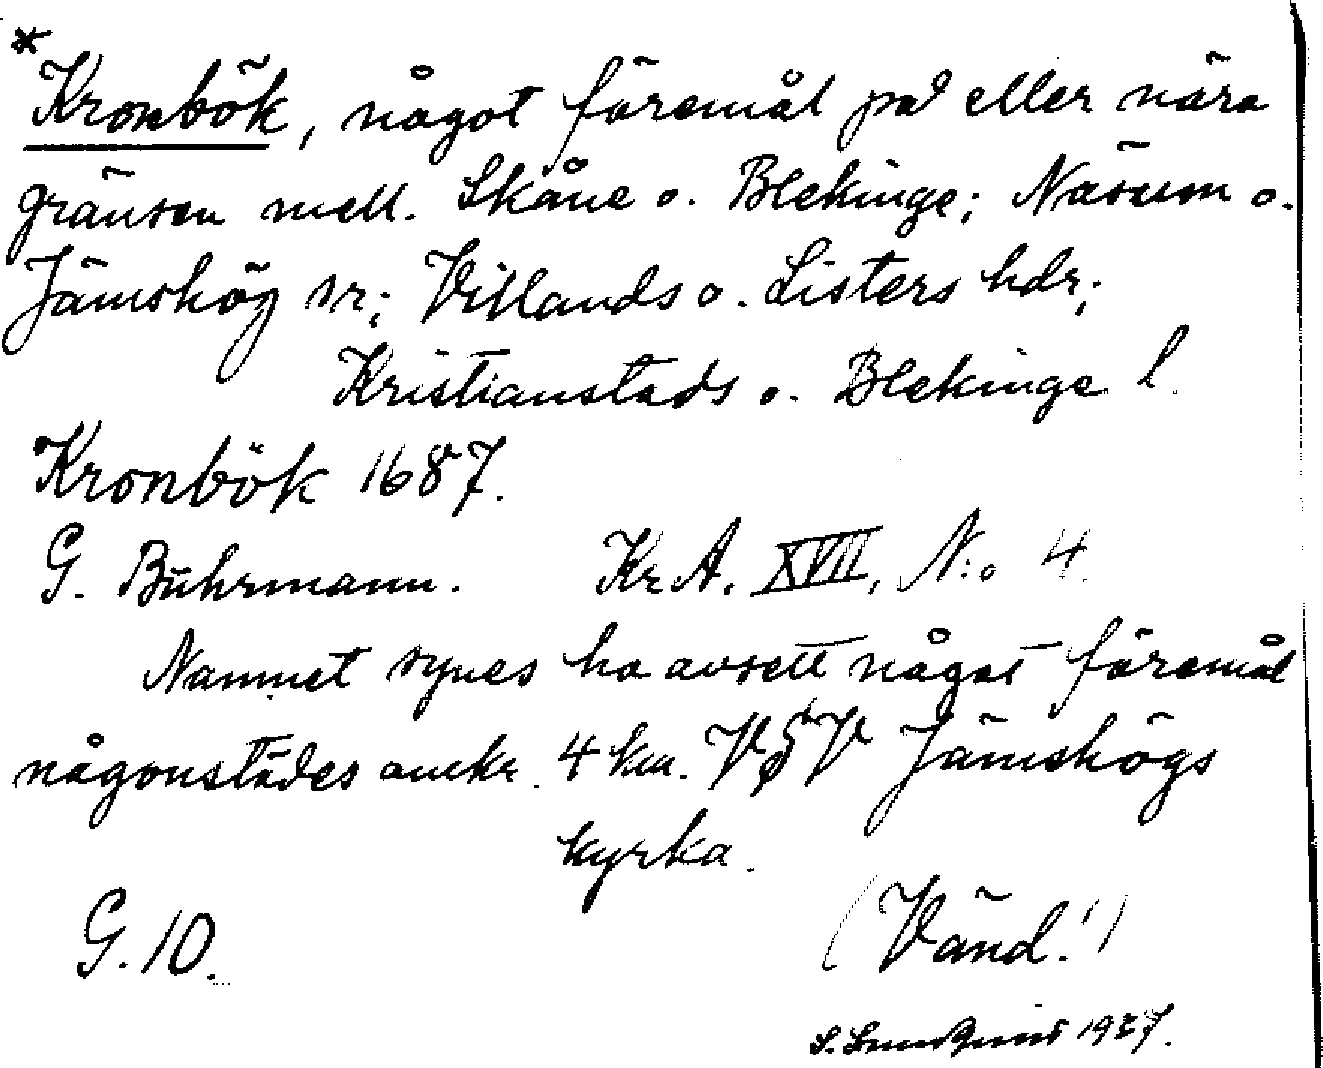 *
Kronbök, något föremål på eller nära
gränsen mell. Skåne o. Blekinge; Näsum o.
Jämshög sr; Villands o. Listers hdr;
Kristianstads o. Blekinge l.
Kronbök 1687.
G. Buhrmann. Kr. A. XVII, N:o 4.
Namnet synes ha avsett något föremål
någonstädes omkr. 4 km. VSV Jämshögs
kyrka.
G. 10. (Vänd!)
S. 1927.